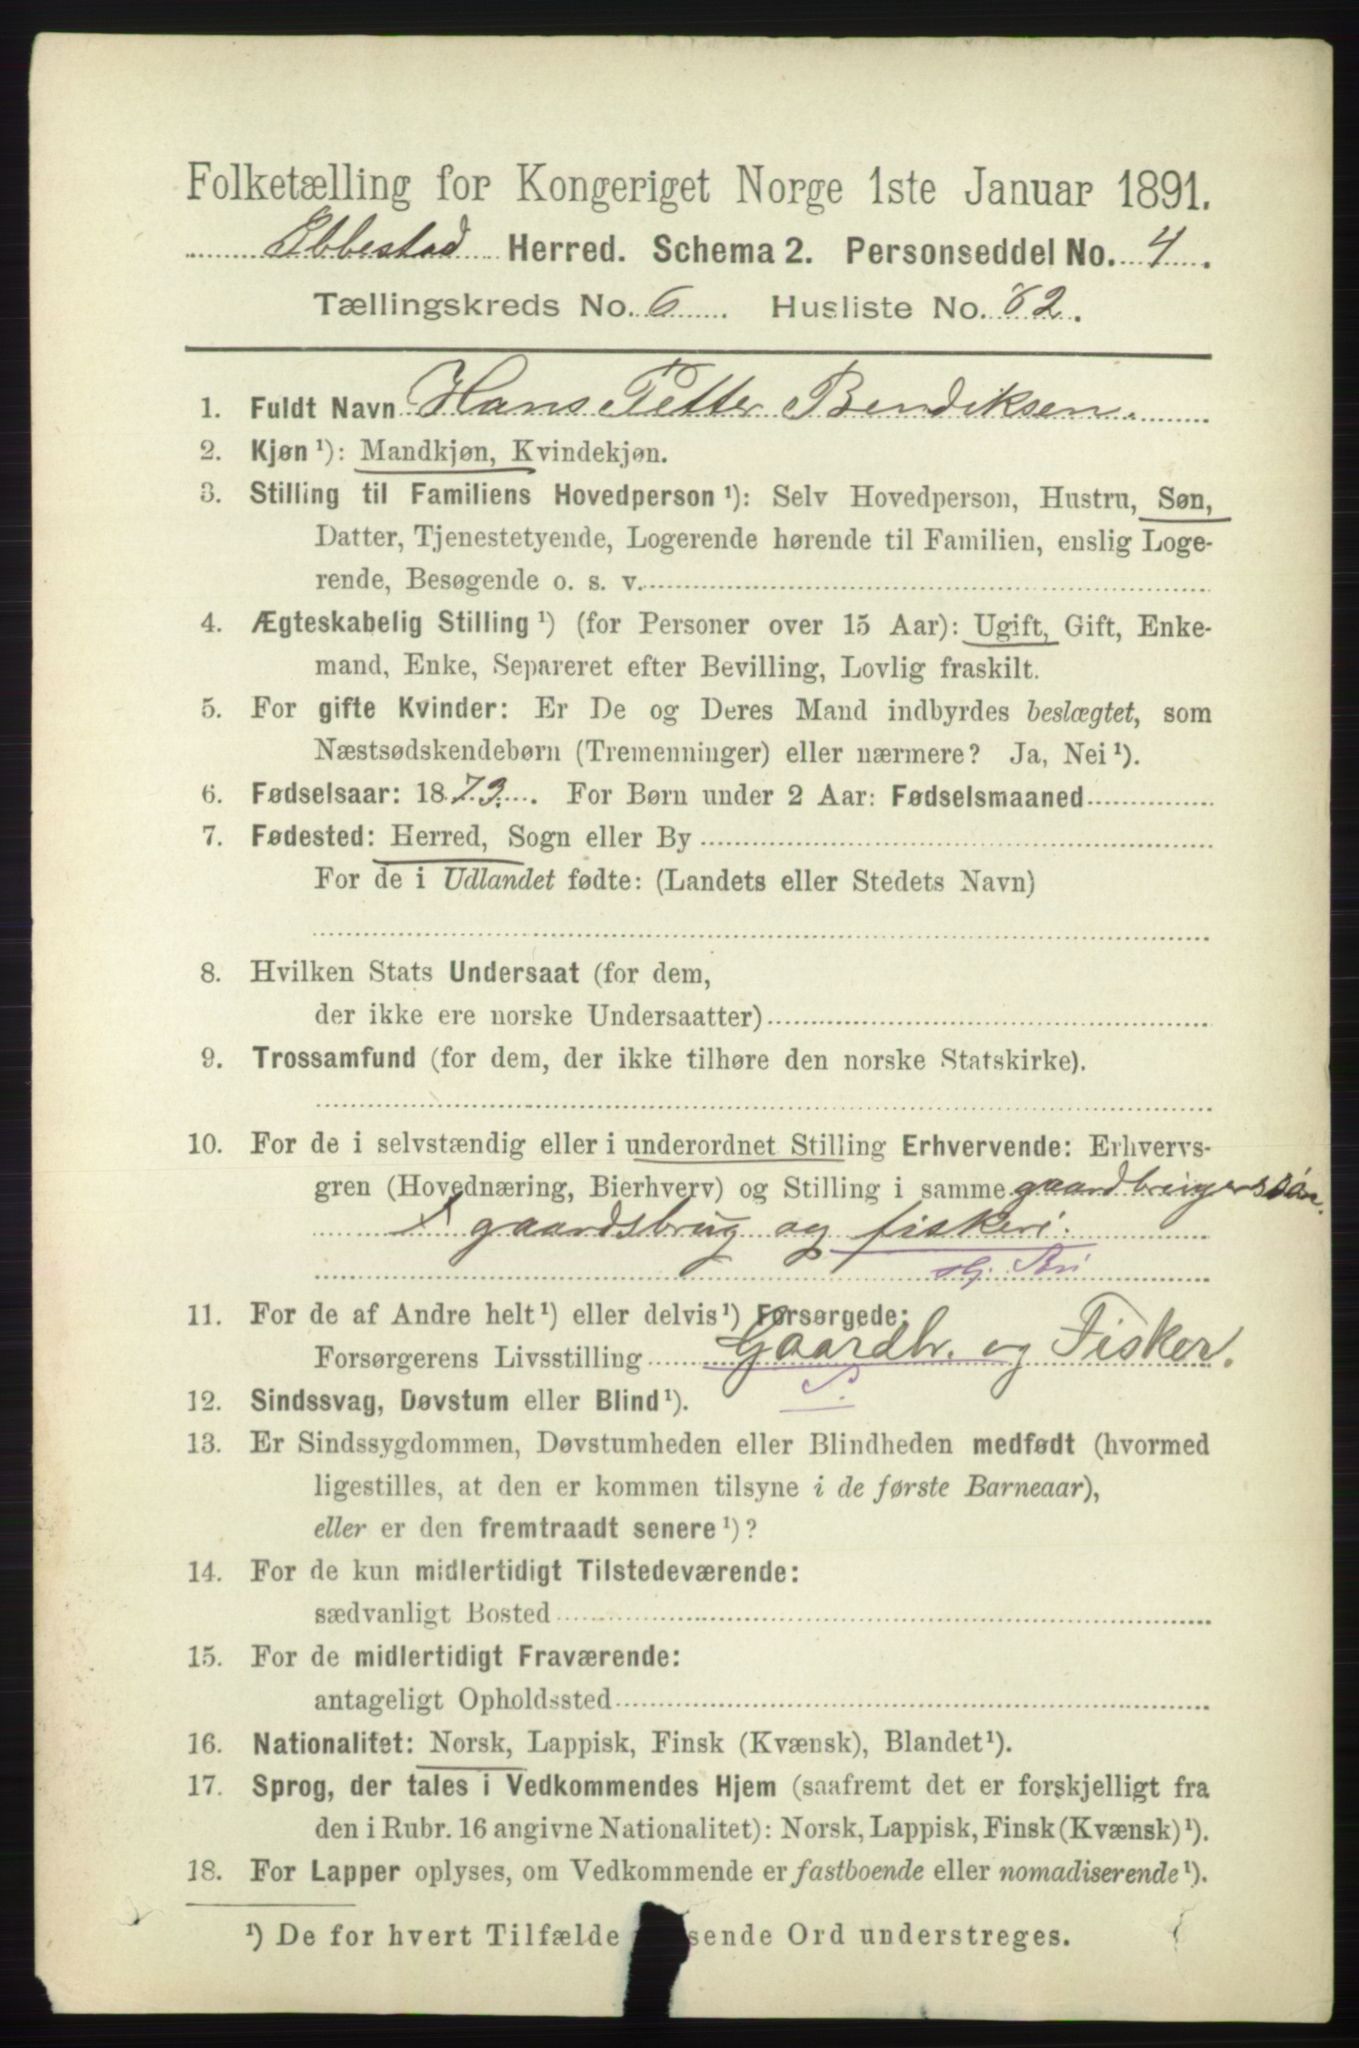 Folketælling for Kongeriget Norge 1ste Januar 1891.
Ibbestad Herred. Schema 2. Personseddel No. 4.
Tællingskreds No. 6. Husliste No. 62.
1. Fuldt Navn Hans Petter Bendiksen.
2. Kjøn ¹): Mandkjøn, Kvindekjøn.
3. Stilling til Familiens Hovedperson ¹): Selv Hovedperson, Hustru, Søn,
Datter, Tjenestetyende, Logerende hørende til Familien, enslig Loge-
rende, Besøgende o. s. v.
4. Ægteskabelig Stilling ¹) (for Personer over 15 Aar): Ugift, Gift, Enke-
mand, Enke, Separeret efter Bevilling, Lovlig fraskilt.
5. For gifte Kvinder: Er De og Deres Mand indbyrdes beslægtet, som
Næstsødskendebørn (Tremenninger) eller nærmere? Ja, Nei ¹).
6. Fødselsaar: 1873. For Børn under 2 Aar: Fødselsmaaned
7. Fødested: Herred, Sogn eller By
For de i Udlandet fødte: (Landets eller Stedets Navn)
8. Hvilken Stats Undersaat (for dem,
der ikke ere norske Undersaatter)
9. Trossamfund (for dem, der ikke tilhøre den norske Statskirke).
10. For de i selvstændig eller i underordnet Stilling Erhvervende: Erhvervs-
gren (Hovednæring, Bierhverv) og Stilling i samme gaardbrugerssön.
gaardsbrug og fiskeri.
11. For de af Andre helt ¹) eller delvis ¹) Forsørgede:
Forsørgerens Livsstilling Gaardbr. og Fisker.
S.
12. Sindssvag, Døvstum eller Blind ¹).
13. Er Sindssygdommen, Døvstumheden eller Blindheden medfødt (hvormed
ligestilles, at den er kommen tilsyne i de første Barneaar),
eller er den fremtraadt senere ¹)?
14. For de kun midlertidigt Tilstedeværende:
sædvanligt Bosted
15. For de midlertidigt Fraværende:
antageligt Opholdssted
16. Nationalitet: Norsk, Lappisk, Finsk (Kvænsk), Blandet ¹).
17. Sprog, der tales i Vedkommendes Hjem (saafremt det er forskjelligt fra
den i Rubr. 16 angivne Nationalitet): Norsk, Lappisk, Finsk (Kvænsk) ¹).
18. For Lapper oplyses, om Vedkommende er fastboende eller nomadiserende ¹).
¹) De for hvert Tilfælde sende Ord understreges.